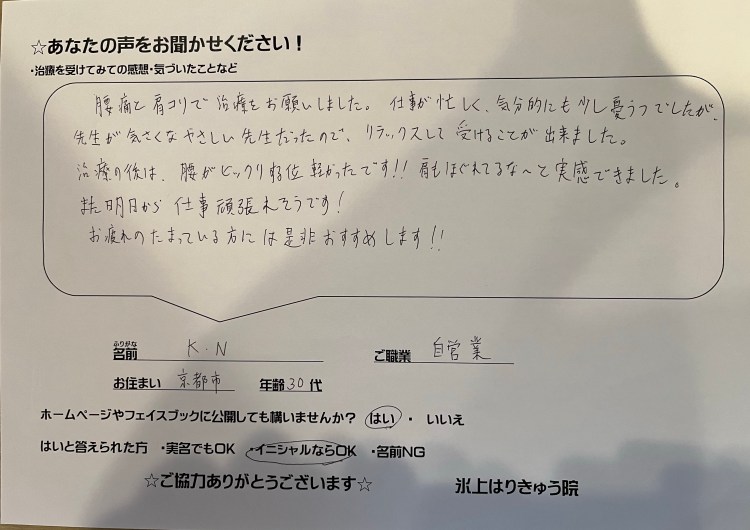 ☆あなたの声をお聞かせください！
・治療を受けてみての感想・気づいたことなど
腰痛と肩コリで治療をお願いしました。仕事が忙しく、気分的にも少し憂うつでしたが、
先生が気さくなやさしい先生だったので、リラックスして受けることが出来ました。
治療の後は、腰がビックリする位軽かったです!! 肩もほぐれてるな〜と実感できました。
また明日から仕事頑張れそうです!
お疲れのたまっている方には是非おすすめします!!
ふりがな
名前 K.N ご職業 自営業
お住まい 京都市 年齢 30 代
ホームページやフェイスブックに公開しても構いませんか？ はい ・ いいえ
はいと答えられた方 ・実名でもOK ・イニシャルならOK ・名前NG
☆ご協力ありがとうございます☆ 氷上はりきゅう院